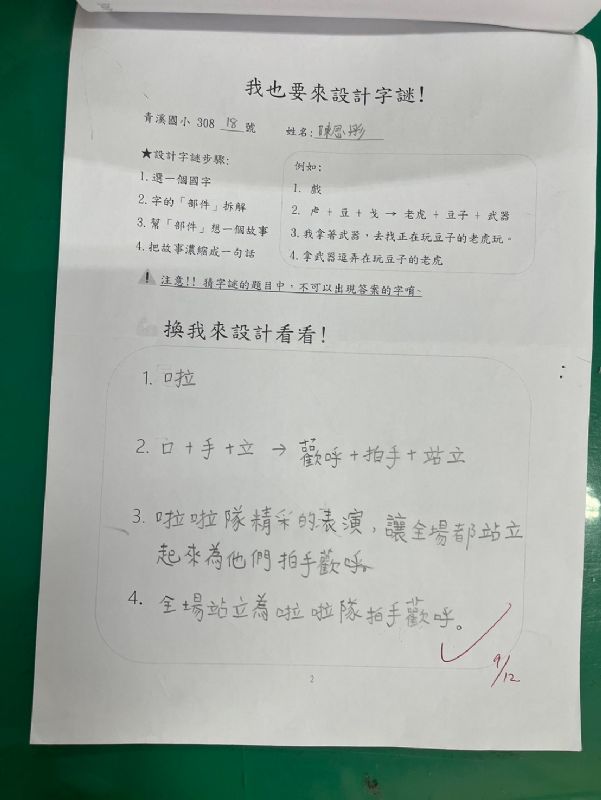 我也要來設計字謎!
青溪國小 308 18 號 姓名: 陳思彤
★設計字謎步驟:
1. 選一個國字
2. 字的「部件」拆解
3. 幫「部件」想一個故事
4. 把故事濃縮成一句話
例如:
1. 戲
2. 虍 + 豆 + 戈 → 老虎 + 豆子 + 武器
3. 我拿著武器,去找正在玩豆子的老虎玩。
4. 拿武器逗弄在玩豆子的老虎
注意!! 猜字謎的題目中,不可以出現答案的字唷~
換我來設計看看!
1. 啦
2. 口 + 手 + 立 → 歡呼 + 拍手 + 站立
3. 啦啦隊精彩的表演,讓全場都站立
起來為他們拍手歡呼。
4. 全場站立為啦啦隊拍手歡呼。
9/12
2